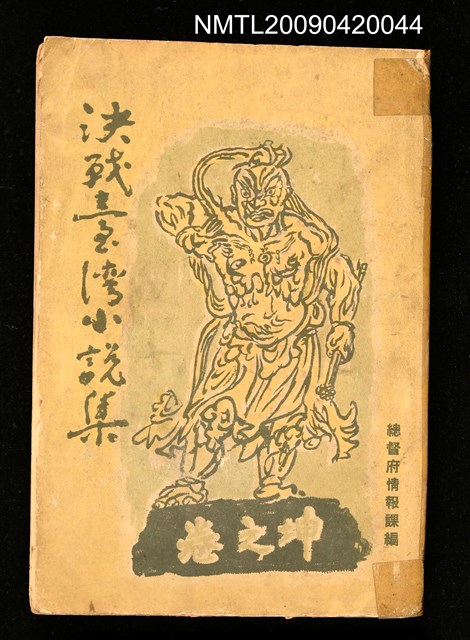 NMTL20090420044
決戰臺灣小說集
總督府情報課編
坤之卷